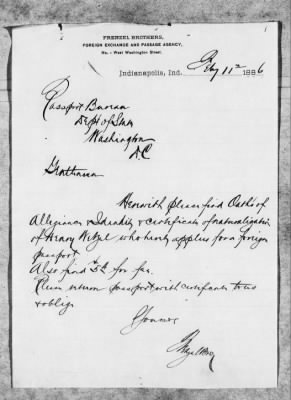 FRENZEL BROTHERS,
FOREIGN EXCHANGE AND PASSAGE AGENCY,
No. - West Washington Street.
Indianapolis, Ind. 11th 1886
Passport Bureau
Dept of State
Washington
D.C
Gentlemen
Herewith please find Oath of
Allegiance & Identity & certificate of naturalization
of Henry who hereby applies for a foreign
passport
Also find for fee.
Please return passport with certificate to us
& oblige
Yours